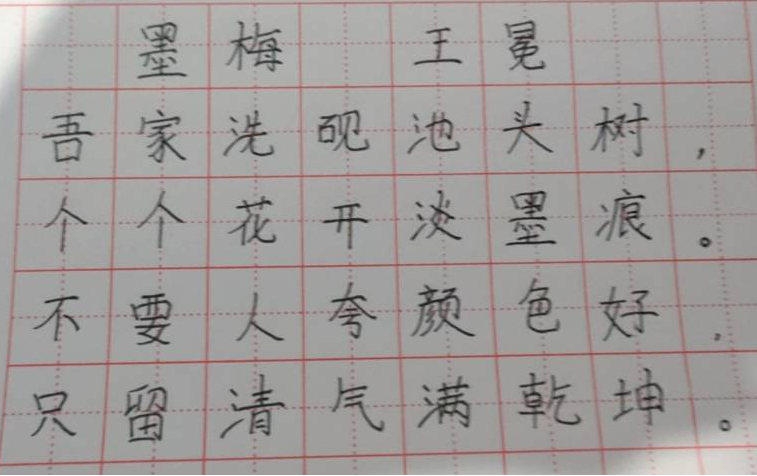 墨梅 王冕
吾家洗砚池头树，
个个花开淡墨痕。
不要人夸颜色好，
只留清气满乾坤。